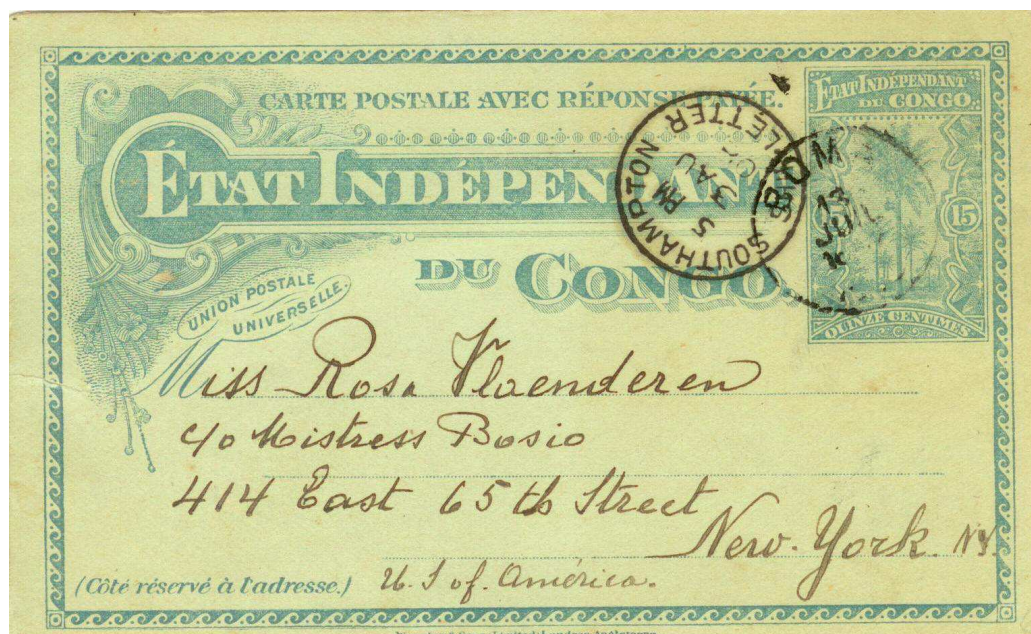 CARTE POSTALE AVEC RÉPONSE PAYÉE.
ÉTAT INDÉPENDANT
DU CONGO.
UNION POSTALE
UNIVERSELLE.
ÉTAT INDÉPENDANT
DU CONGO.
15
15
QUINZE CENTIMES
SOUTHAMPTON SHIP LETTER
5 PM
3 AU
BOMA
13
JUIL
Miss Rosa Vlaenderen
c/o Mistress Bosio
414 East 65th Street
New-York. NY.
U. S of. América.
(Côté réservé à l'adresse.)